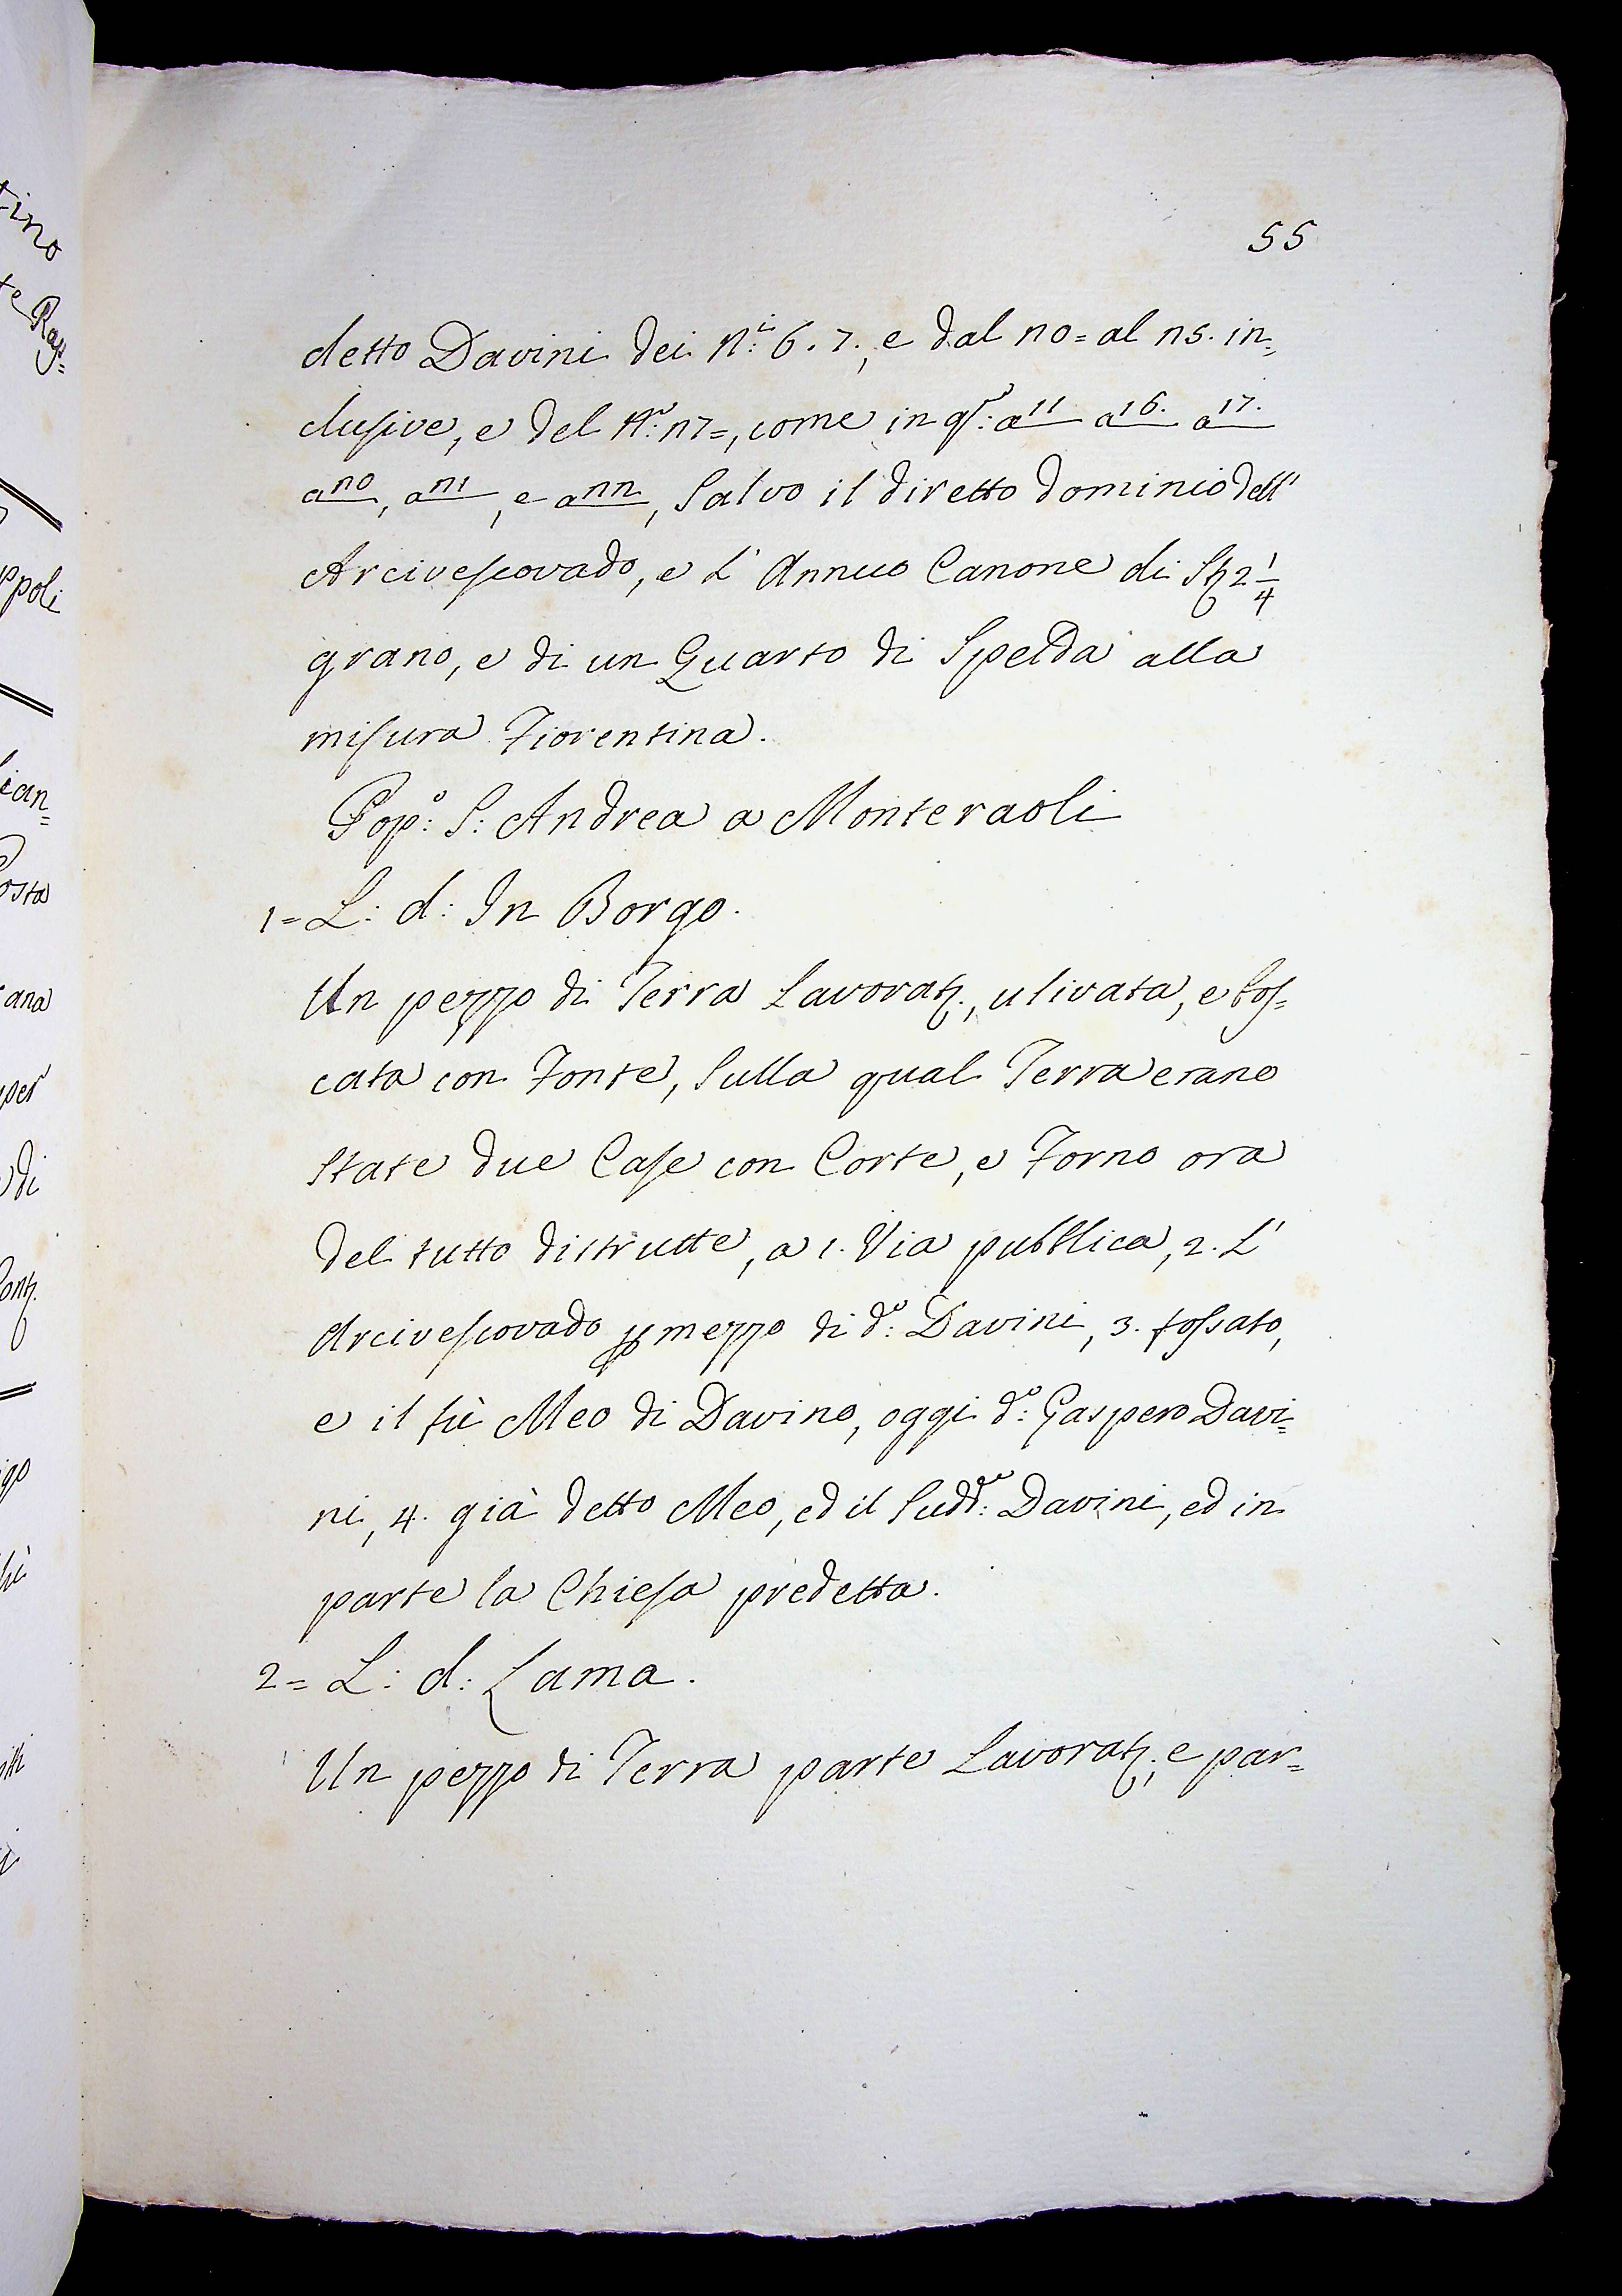 55
detto Davini dei N.i 6. 7., e dal 20= al 25. in=
clusive, e del N.o 27=, come in q.o: a 11 a 16. a 17.
a 20, a 21, e a 22, Salvo il diretto dominio dell'
Arcivescovado, e L'Annuo Canone di St 2 1/4
grano, e di un Quarto di Spelda alla
misura Fiorentina.
Pop:o S: Andrea a Monteraoli
1= L: d: In Borgo.
Un pezzo di Terra Lavorat., ulivata, e bos=
cata con Fonte, Sulla qual Terra erano
State due Case con Corte, e Forno ora
del tutto distrutte, a 1. Via pubblica, 2. L'
Arcivescovado p mezzo di d:o Davini, 3. fossato,
e il fù Meo di Davino, oggi d:o Gaspero Davi=
ni, 4. già detto Meo, ed il Sudd:o Davini, ed in
parte la Chiesa predetta.
2= L: d: Lama.
Un pezzo di Terra parte Lavorat., e par=
tino
te Rag=
ppoli
ian=
osta
ana
per
di